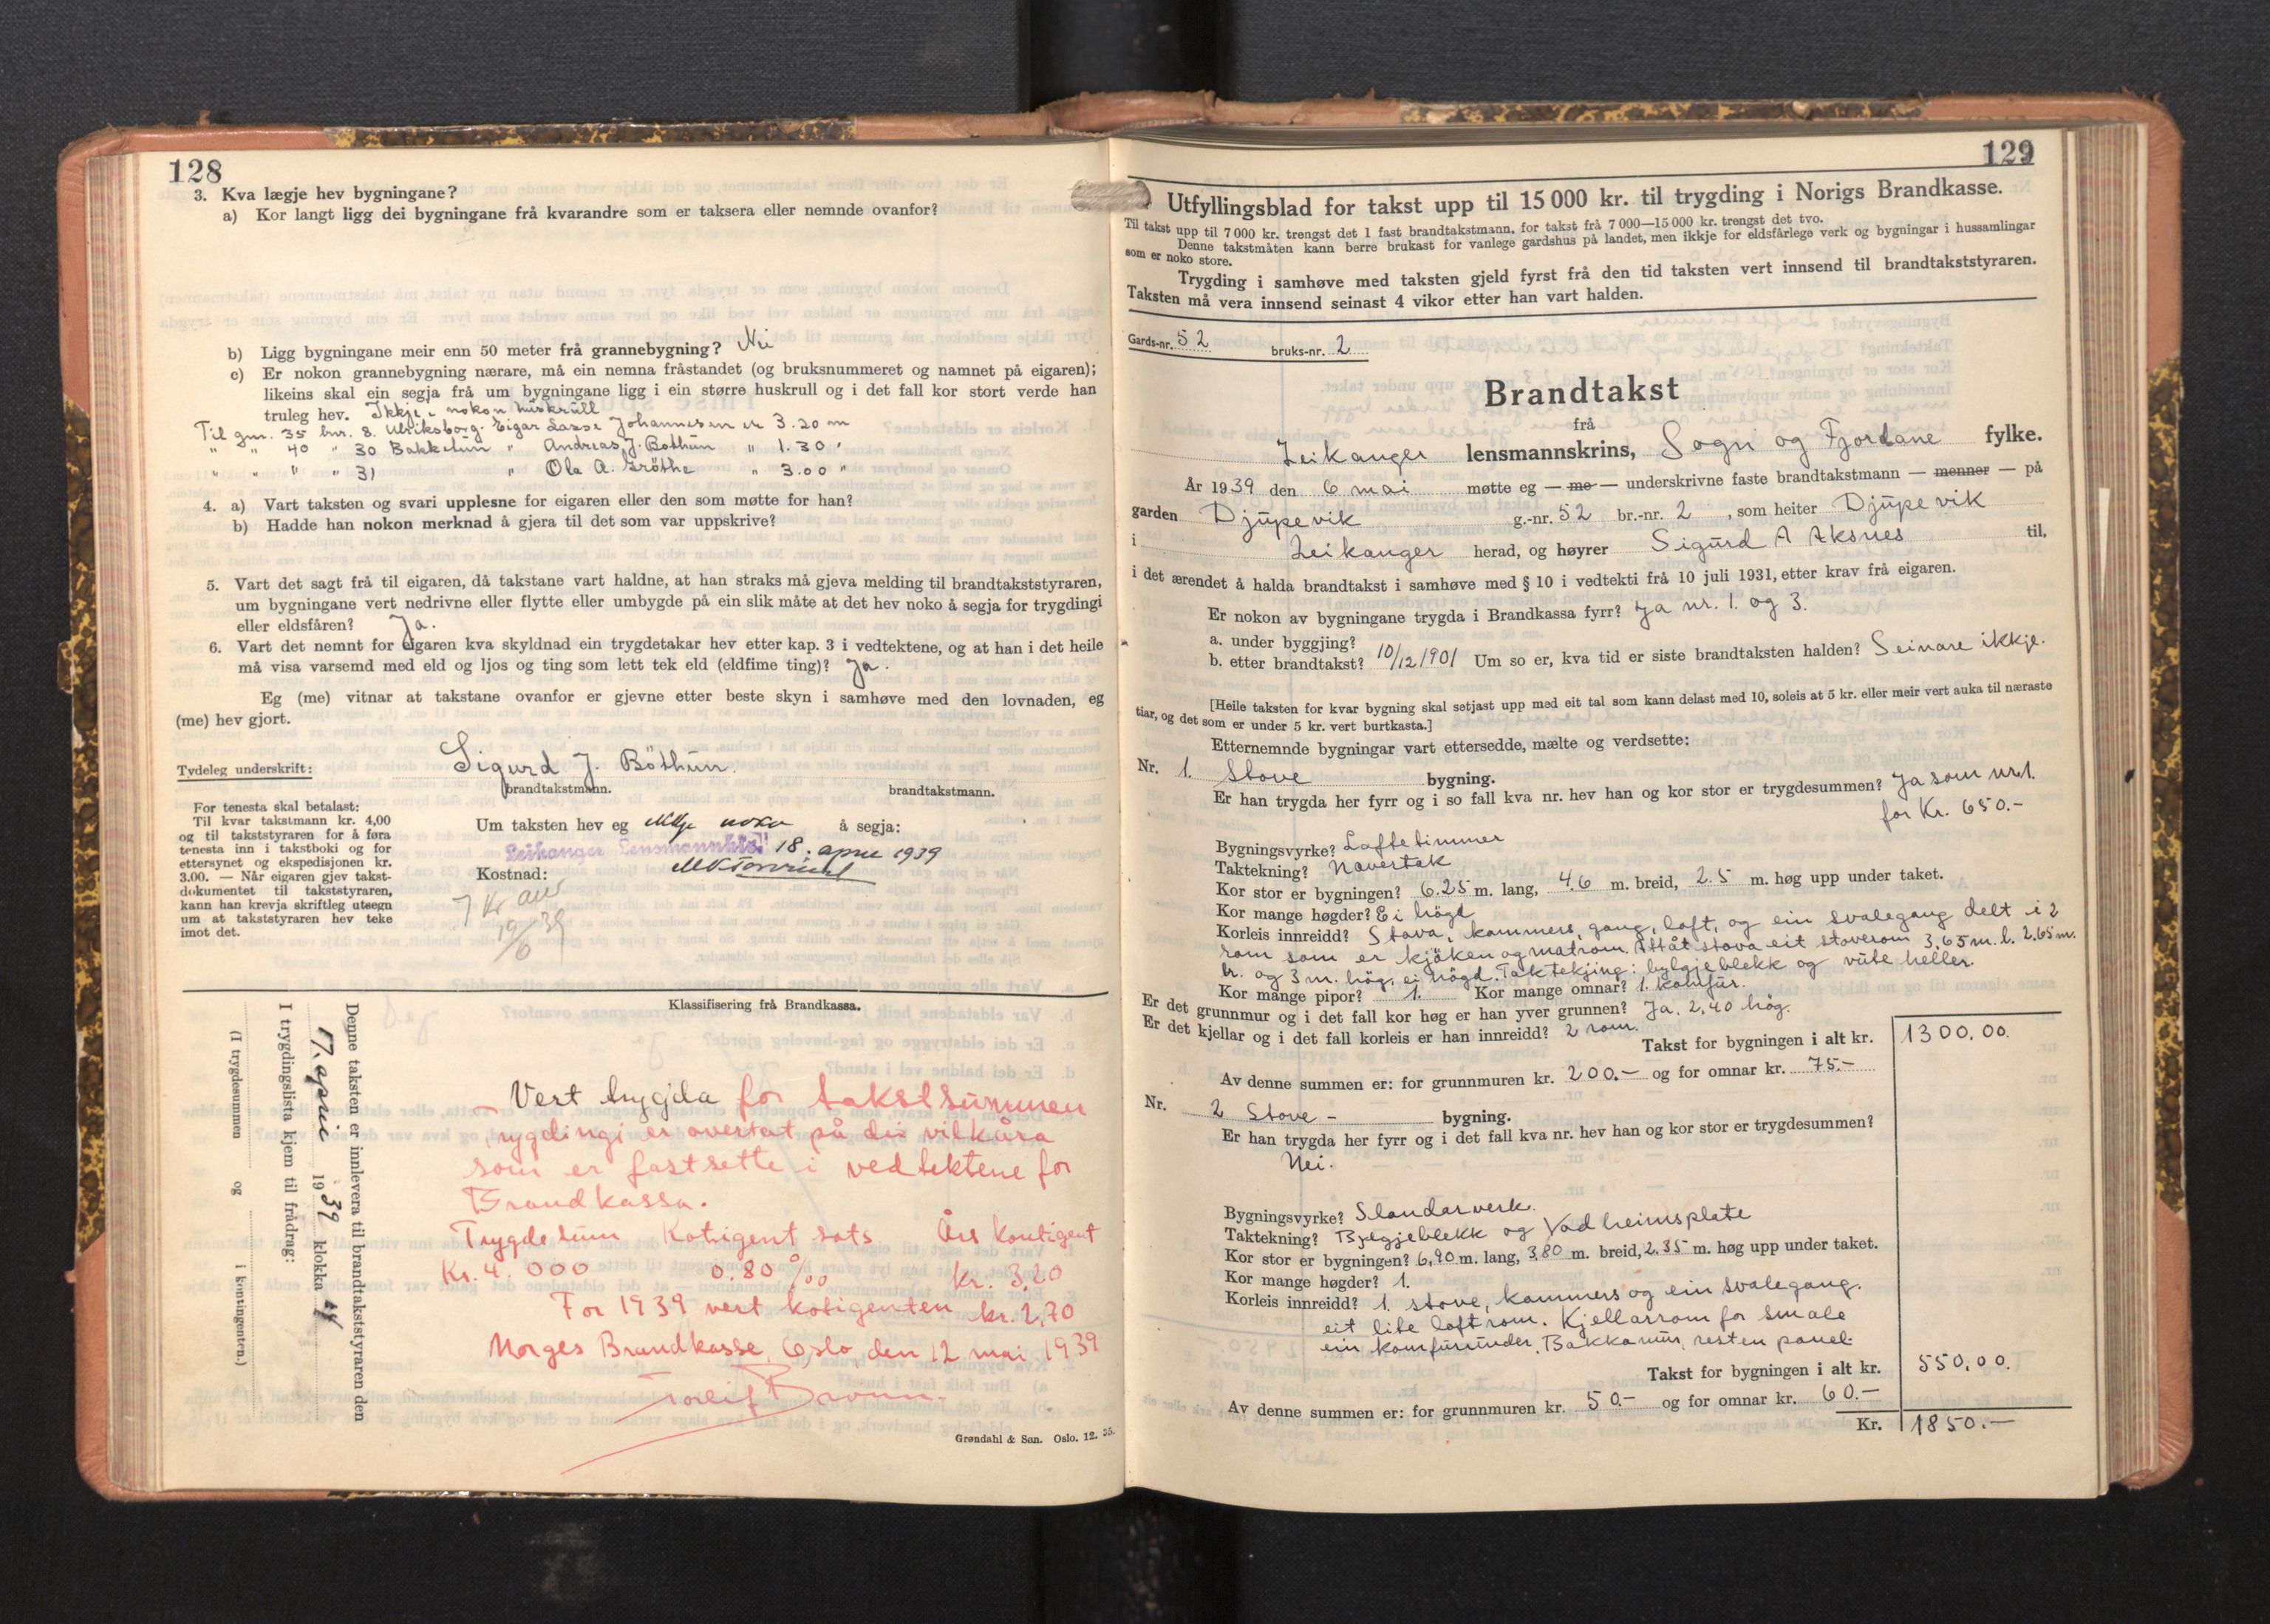 128
3. Kva lægje hev bygningane?
a) Kor langt ligg dei bygningane frå kvarandre som er taksera eller nemnde ovanfor?
b) Ligg bygningane meir enn 50 meter frå grannebygning? Nei
c) Er nokon grannebygning nærare, må ein nemna fråstandet (og bruksnummeret og namnet på eigaren);
likeins skal ein segja frå um bygningane ligg i ein større huskrull og i det fall kor stort verde han
truleg hev. Ikkje i nokon huskrull
Til gnr. 35 bnr. 8. Ulriksborg. Eigar Lasse Johannesen er 3.20 m
" " 40 " 30 Bakketun " Andreas J. Bøthun " 1.30 "
" " " " 31 " Ola A. Grøthe " 3.00 "
4. a) Vart taksten og svari upplesne for eigaren eller den som møtte for han?
b) Hadde han nokon merknad å gjera til det som var uppskrive?
5. Vart det sagt frå til eigaren, då takstane vart haldne, at han straks må gjeva melding til brandtakststyraren,
um bygningane vert nedrivne eller flytte eller umbygde på ein slik måte at det hev noko å segja for trygdingi
eller eldsfåren? Ja.
6. Vart det nemnt for eigaren kva skyldnad ein trygdetakar hev etter kap. 3 i vedtektene, og at han i det heile
må visa varsemd med eld og ljos og ting som lett tek eld (eldfime ting)? Ja.
Eg (me) vitnar at takstane ovanfor er gjevne etter beste skyn i samhøve med den lovnaden, eg
(me) hev gjort.
Tydeleg underskrift: Sigurd J. Bøthun.
brandtakstmann. brandtakstmann.
For tenesta skal betalast:
Til kvar takstmann kr. 4,00
og til takststyraren for å føra
tenesta inn i takstboki og for
ettersynet og ekspedisjonen kr.
3.00. — Når eigaren gjev takst-
dokumentet til takststyraren,
kann han krevja skriftleg utsegn
um at takststyraren hev teke
imot det.
Um taksten hev eg ikkje noko å segja:
Leikanger Lensmannskb. 18. april 1939
Kostnad:
7 Kr
19/6 39
Klassifisering frå Brandkassa.
Denne taksten er innlevera til brandtakststyraren den
17. april 1939 klokka 14
I trygdingslista kjem til frådrag:
(I trygdesummen og i kontingenten.)
Vert trygda for takstsummen
rygdingi er overtat på dei vilkåra
som er fastsette i vedtektene for
Brandkassa.
Trygdesum Kotigent sats Års kontigent
Kr. 4.000 0.80 ‰ kr. 3,20
For 1939 vert kotigenten kr. 2,70
Norges Brandkasse, Oslo, den 12 mai 1939
Grøndahl & Søn. Oslo. 12. 35.
129
Utfyllingsblad for takst upp til 15 000 kr. til trygding i Norigs Brandkasse.
Til takst upp til 7 000 kr. trengst det 1 fast brandtakstmann, for takst frå 7 000—15 000 kr. trengst det tvo.
Denne takstmåten kann berre brukast for vanlege gardshus på landet, men ikkje for eldsfårlege verk og bygningar i hussamlingar
som er noko store.
Trygding i samhøve med taksten gjeld fyrst frå den tid taksten vert innsend til brandtakststyraren.
Taksten må vera innsend seinast 4 vikor etter han vart halden.
Gards-nr. 52 bruks-nr. 2
Brandtakst
frå
Leikanger lensmannskrins, Sogn og Fjordane fylke.
År 1939 den 6 mai møtte eg — me — underskrivne faste brandtakstmann — menner — på
garden Djupevik g.-nr. 52 br.-nr. 2, som heiter Djupevik
i Leikanger herad, og høyrer Sigurd A Aksnes til,
i det ærendet å halda brandtakst i samhøve med § 10 i vedtekti frå 10 juli 1931, etter krav frå eigaren.
Er nokon av bygningane trygda i Brandkassa fyrr? Ja nr. 1. og 3.
a. under byggjing?
b. etter brandtakst? 10/12 1901 Um so er, kva tid er siste brandtaksten halden? Seinare ikkje.
[Heile taksten for kvar bygning skal setjast upp med eit tal som kann delast med 10, soleis at 5 kr. eller meir vert auka til næraste
tiar, og det som er under 5 kr. vert burtkasta.]
Etternemnde bygningar vart ettersedde, mælte og verdsette:
Nr. 1. Stove bygning.
Er han trygda her fyrr og i so fall kva nr. hev han og kor stor er trygdesummen? Ja som nr 1.
for Kr. 650.-
Bygningsvyrke? Laftetimmer
Taktekning? Navertak
Kor stor er bygningen? 6.25 m. lang, 4.6 m. breid, 2.5 m. høg upp under taket.
Kor mange høgder? Ei högd
Korleis innreidd? Stova, kammers, gang, loft, og ein svalegang delt i 2
rom som er kjöken og matrom. Attåt stova eit stoverom 3,65 m. l. 2,65 m.
br. og 3 m. hög, ei högd. Taktekjing: bylgjeblekk og vute heller.
Kor mange pipor? 1. Kor mange omnar? 1. komfur.
Er det grunnmur og i det fall kor høg er han yver grunnen? Ja. 2,40 hög.
Er det kjellar og i det fall korleis er han innreidd? 2 rom.
Takst for bygningen i alt kr. 1300,00.
Av denne summen er: for grunnmuren kr. 200.- og for omnar kr. 75.-
Nr. 2 Stove - bygning.
Er han trygda her fyrr og i det fall kva nr. hev han og kor stor er trygdesummen?
Nei.
Bygningsvyrke? Standarverk.
Taktekning? Bylgjeblekk og Vadheimsplate
Kor stor er bygningen? 6,90 m. lang, 3.80 m. breid, 2.35 m. høg upp under taket.
Kor mange høgder? 1.
Korleis innreidd? 1. stove, kammers og ein svalegang.
eit lite loftrom. Kjellarrom for smale
ein komfurunder. Bakkamur, resten panel.
Takst for bygningen i alt kr. 550,00.
Av denne summen er: for grunnmuren kr. 50.- og for omnar kr. 60.-
Kr. 1850.-